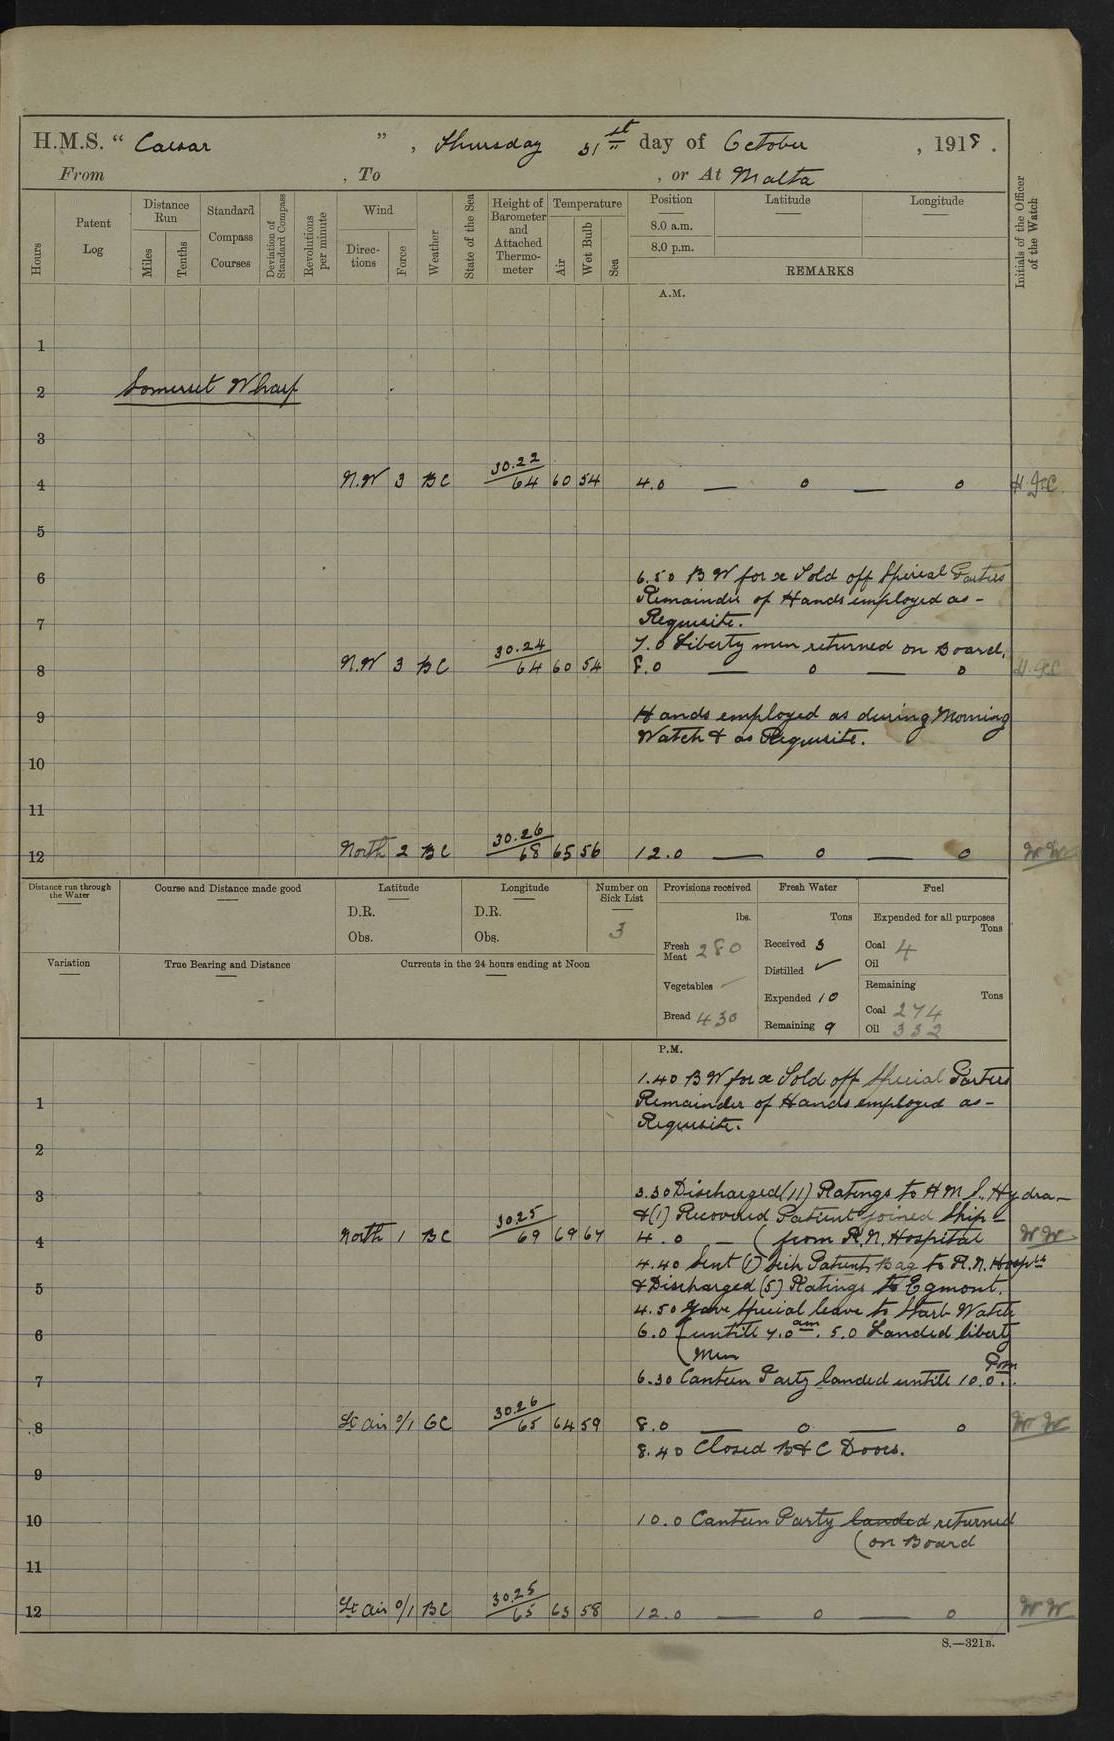 H.M.S. “ Caesar ” , Thursday 31st day of October , 1918 .
From , To , or At Malta
Hours
Patent Log
Distance Run
Miles
Tenths
Standard Compass Courses
Deviation of Standard Compass
Revolutions per minute
Wind
Direc-tions
Force
Weather
State of the Sea
Height of Barometer and Attached Thermo-meter
Temperature
Air
Wet Bulb
Sea
Position
8.0 a.m.
8.0 p.m.
Latitude
Longitude
REMARKS
Initials of the Officer of the Watch
A.M.
1
2 Somerset Wharf
3
4 N.W 3 BC 30.22 / 64 60 54 4.0 — 0 — 0
5
6 6.50 B W for x Sold off Special Parties
Remainder of Hands employed as -
7 Requisite.
7.0 Liberty men returned on Board.
8 N.W 3 BC 30.24 / 64 60 54 8.0 — 0 — 0
9 Hands employed as during Morning
Watch & as Requisite.
10
11
12 North 2 BC 30.26 / 68 65 56 12.0 — 0 — 0 WW
Distance run through the Water
Course and Distance made good
Latitude
D.R.
Obs.
Longitude
D.R.
Obs.
Number on Sick List
3
Provisions received
lbs.
Fresh Meat 280
Vegetables
Bread 430
Fresh Water
Tons
Received 3
Distilled ✓
Expended 10
Remaining 9
Fuel
Expended for all purposes
Tons
Coal 4
Oil
Remaining
Tons
Coal 274
Oil 332
Variation
True Bearing and Distance
Currents in the 24 hours ending at Noon
P.M.
1.40 B W for x Sold off Special Parties
1 Remainder of Hands employed as -
Requisite.
2
3 3.30 Discharged (11) Ratings to H M S. Hydra -
& (1) Recovered Patient joined Ship -
4 North 1 BC 30.25 / 69 69 67 4.0 — ( from R.N. Hospital WW
4.40 Sent (1) sick Patient, Bag to R.N. Hosptl
5 & Discharged (5) Ratings to Egmont.
4.50 Gave special leave to Starb Watch
6 6.0 ( untill 7.0 am. 5.0 Landed liberty
( Men
7 6.30 Canteen Party landed untill 10.0 pm.
8 Lt air 0/1 GC 30.26 / 65 64 59 8.0 — 0 — 0 WW
8.40 Closed B & C Doors.
9
10 10.0 Canteen Party landed returned
( on Board
11
12 Lt air 0/1 BC 30.25 / 65 63 58 12.0 — 0 — 0 WW
S.—321B.